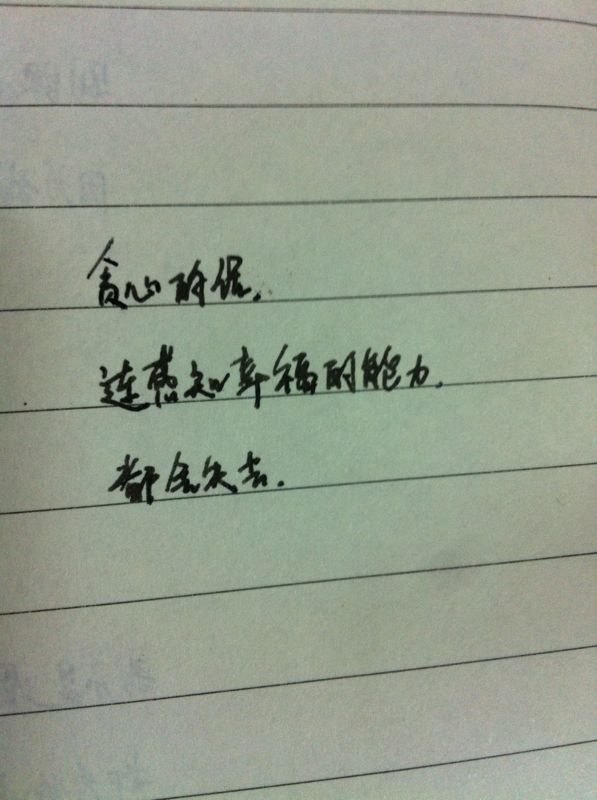 贪心的话,
连感知幸福的能力,
都会失去.